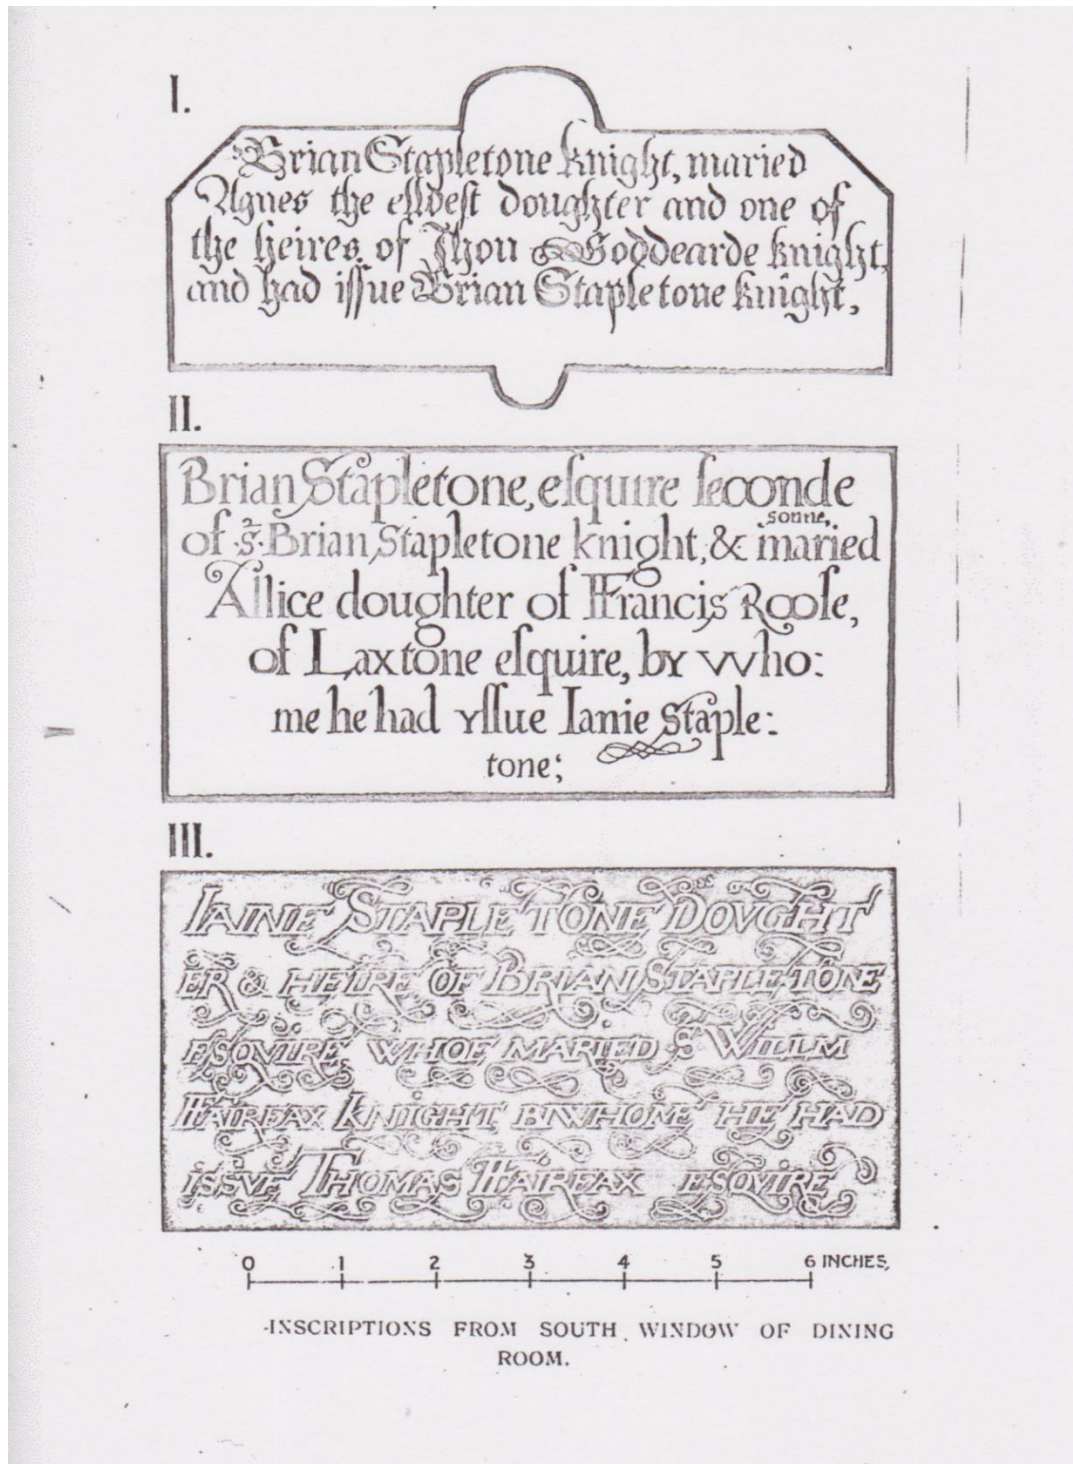 I.
Sr Brian Stapletone knight, maried
Agnes the elldest doughter and one of
the heires, of Jhon Goddearde knight,
and had issue Brian Stapletone knight,
II.
Brian Stapletone, esquire seconde
sonne,
of Sr. Brian Stapletone knight, & maried
Allice doughter of FFrancis Roose,
of Laxtone esquire, by who:
me he had yssue Ianie Staple:
tone;
III.
IAINE STAPLETONE DOVGHT
ER & HEIRE OF BRIAN STAPLETONE
ESQVIRE WHOE MARIED Sr WILLM
FFAIRFAX KNIGHT BIWHOME HE HAD
ISSVE THOMAS FFAIRFAX ESQVIRE
0 1 2 3 4 5 6 INCHES,
INSCRIPTIONS FROM SOUTH WINDOW OF DINING
ROOM.